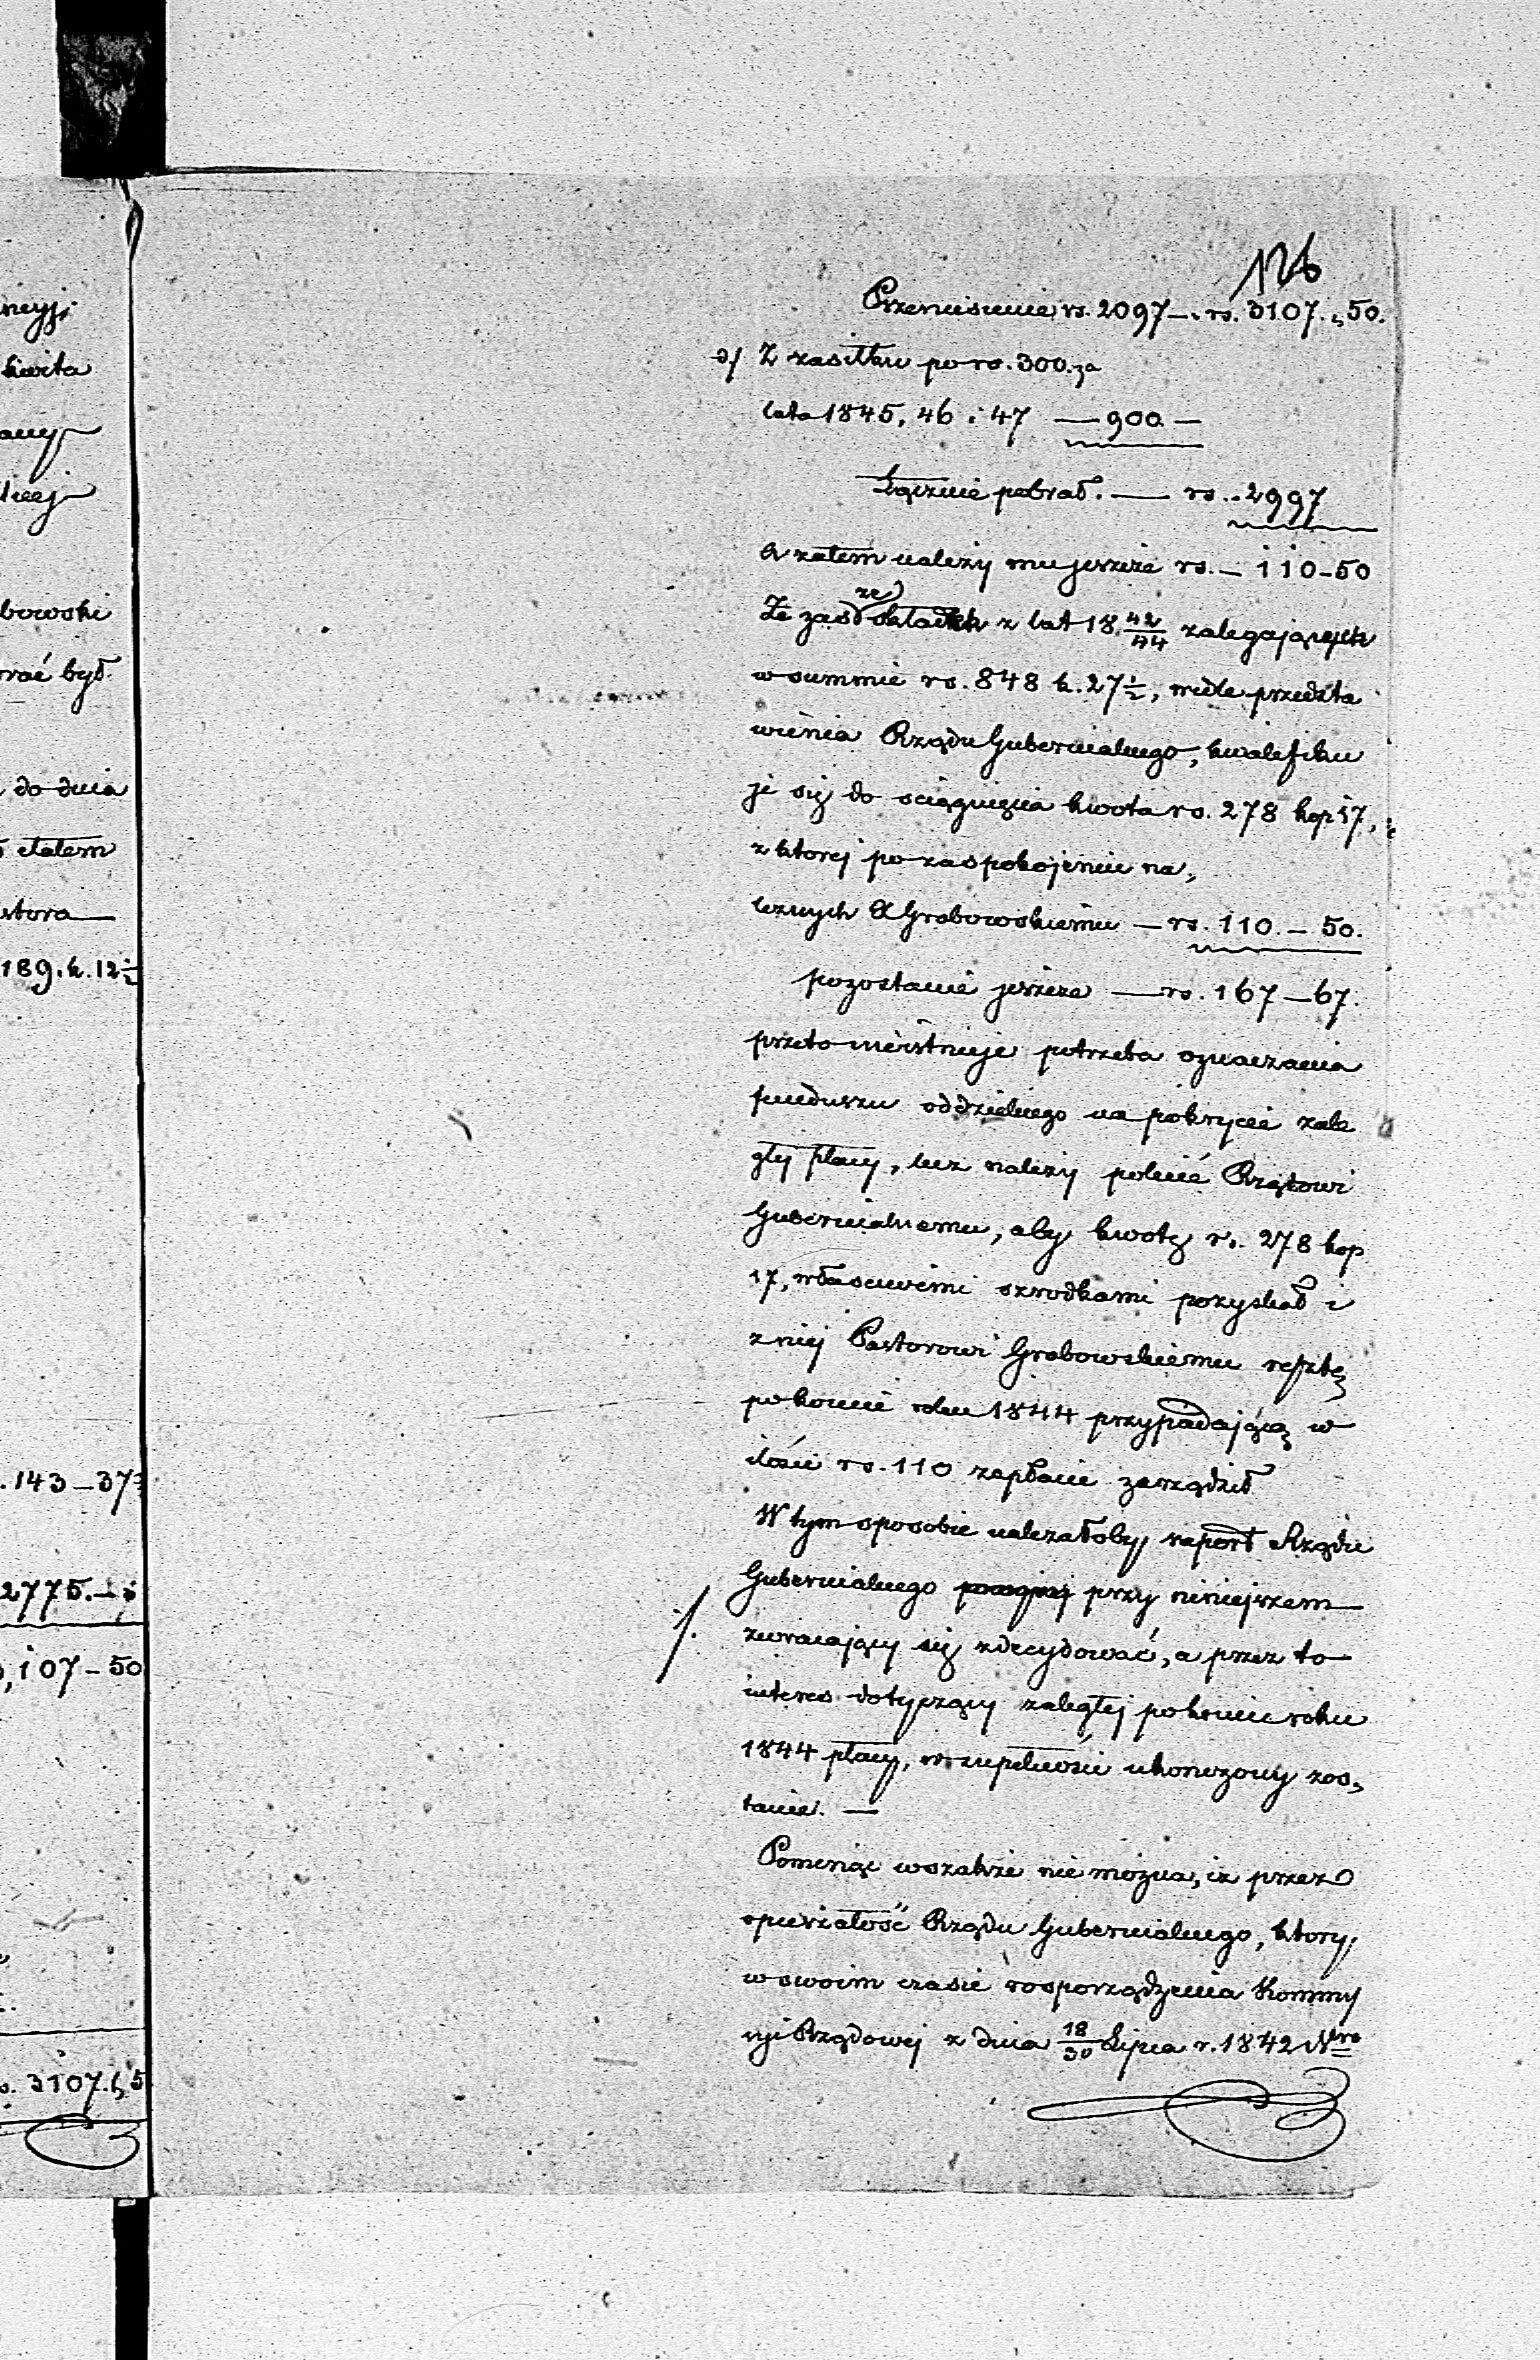 neyj,
kwita
bowski
rać był
do dnia
etatem
189. k. 12½
. 143 – 37½
2775. –
107 – 50
3107. 5
126
Przeniesienie rs. 2097 –. rs. 3107. „ 50.
Z zasiłku po rs. 300. za
lata 1845, 46 i 47 — 900 —
Łącznie pobrał. — rs. - 2997
a zatem należy mu jeszcze rs. – 110 - 50
Że zaś ze składek z lat 18 42/44 zalegających
w summie rs. 848 k. 27½, wedle przedsta
wienia Rządu Gubernialnego, kwalifiku
je się do sciągnięcia kwota rs. 278 kop 17,
z ktorej po zaspokojeniu na„
leznych X Grabowskiemu — rs. 110. – 50.
pozostanie jeszcze — rs. 167 – 67.
przeto nieistnieje potrzeba oznaczania
funduszu oddzielnego na pokrycie zale
głej płacy, lecz należy polecić Rządowi
Gubernialnemu, aby kwotę rs. 278 kop
17, właściwemi szrodkami pozyskał i
z niej Pastorowi Grabowskiemu resztę
po koniec roku 1844 przypadającą w
ilości rs. 110 zapłacić zarządził
W tym sposobie należałoby raport Rządu
Gubernialnego przy niniejszem
zwracający się zdecydować, a przez to
interes dotyczący zaległej po koniec roku
1844 płacy, w zupełności ukonczony zos„
tanie. —
Pominąć wszakże nie można, iż przez
opieszałość Rządu Gubernialnego, ktory,
w swoim czasie rosporządzenia Kommis
syi Rządowej z dnia 18/30 Lipca r. 1842 Nro